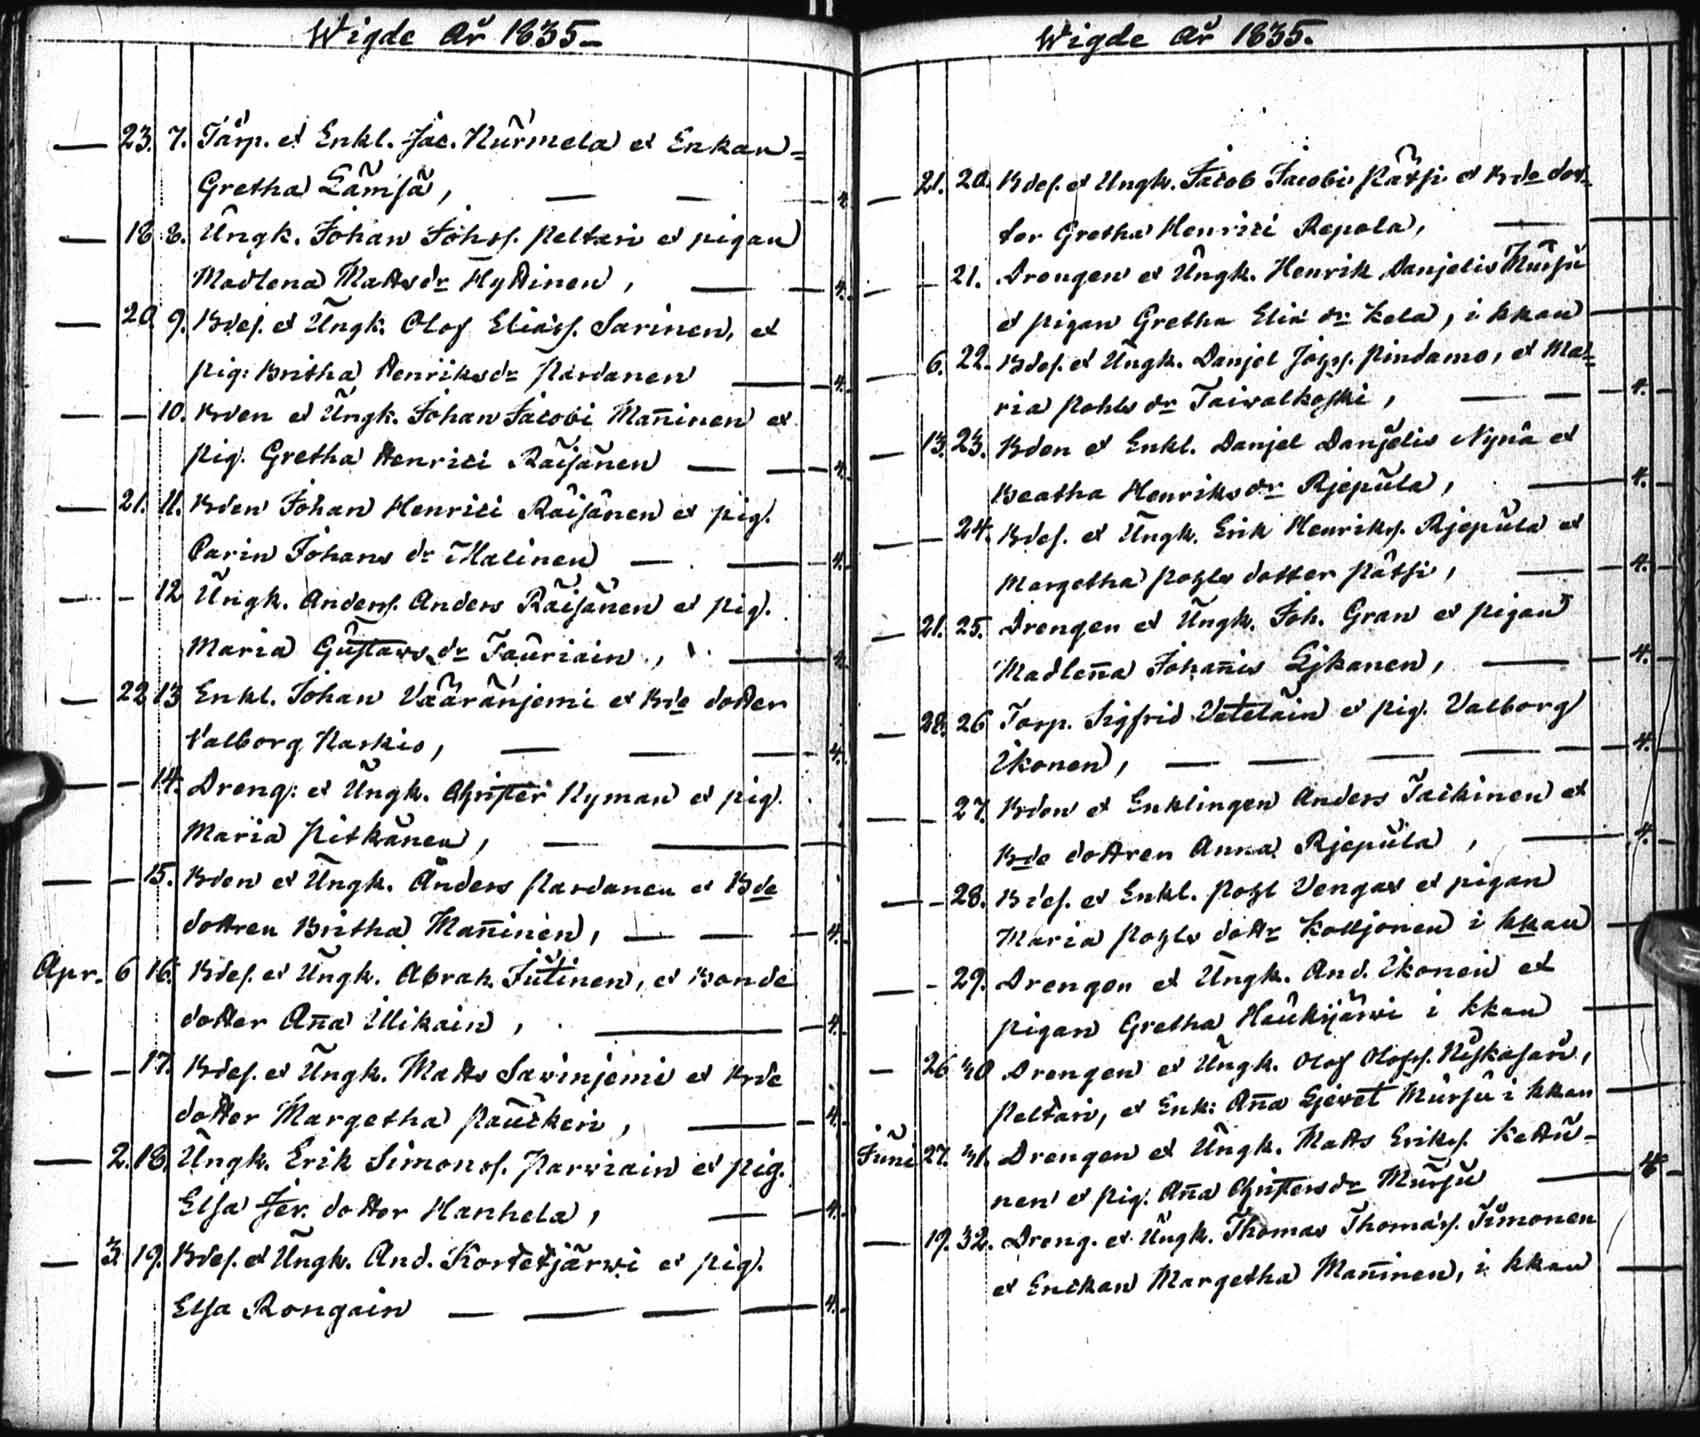 Wigde År 1835
— 23. 7. Tårp. et Enkl. Jac. Nurmela et Enkan
Gretha Lämsä, — — 4.
— 18 8. Ungk. Johan Johss. Peltari et pigan
Madlena Mattsdr Hyttinen, — 4.
— 20 9. Bdes. et Ungk. Olof Eliäss. Sarinen, et
pig: Britha Henriksdr Pardanen — 4.
— — 10. Bden et Ungk. Johan Jacobi Mañinen et
pig. Gretha Henrici Räisänen — — 4.
— 21. 11. Bden Johan Henrici Räisänen et pig.
Carin Johans dr Malinen — — 4.
— – 12 Ungk. Anders. Anders Räisänen et pig.
Maria Gustavs dr Tauriain, — 4.
— 22 13 Enkl. Johan Vääränjemi et Bde dotter
Valborg Narkio, — — — 4.
— – 14. Dreng: et Ungk. Christer Nyman et pig.
Maria Pitkänen, — —
— – 15. Bden et Ungk. Anders Pardanen et Bde
dottren Britha Mañinen, — — 4.
Apr. 6 16. Bdes. et Ungk. Abrah. Jutinen, et Bonde
dotter Aña Illikain, — 4.
— – 17. Bdes. et Ungk. Matts Savinjemi et Bde
dotter Margetha Pauckeri, — 4.
— 2. 18. Ungk. Erik Simonss. Parviain et pig.
Elsa Jer. dotter Hanhela, — 4.
— 3. 19. Bdes. et Ungk. And. Kortetjärwi et pig.
Elsa Rongain — — — — 4.
Wigde År 1835.
— 21. 20. Bdes. et Ungk. Jacob Jacobi Pätsi et Bde dot-
ter Gretha Henrici Repola, —
— – 21. Drengen et Ungk. Henrik Danjelis Mursu
et pigan Gretha Eliä dr Kela, i kkan
— 6. 22. Bdes. et Ungk. Danjel Johss. Pindamo, et Ma-
ria Pohls dr Taivalkoski, — — 4.
— 13. 23. Bden et Enkl. Danjel Danjelis Nynä et
Beatha Henriksdr Rjepula, — 4.
— 24. Bdes. et Ungk. Erik Henrikss. Rjepula et
Margetha Pohls dotter Pätsi, — 4.
— 21. 25. Drengen et Ungk. Joh. Gran et pigan
Madleña Johañis Lykanen, — 4.
— 28. 26 Torp. Sigfrid Vetelain et pig. Valborg
Ikonen, — — — — 4.
— – 27. Bden et Enklingen Anders Jackinen et
Bde dottren Anna Rjepula, — 4.
— – 28. Bdes. et Enkl. Pohl Vengas et pigan
Maria Pohls dottr Kolljonen i kkan
— – 29. Drengen et Ungk. And. Ikonen et
pigan Gretha Haukijärwi i kkan
— 26 30 Drengen et Ungk. Olof Olofss. Niskasari,
Peltari, et Enk: Aña Ljevet Mursu i kkan
Juni 27. 31. Drengen et Ungk. Matts Erikss. Kettu-
nen et pig. Aña Christersdr Mursu — 4
— 19. 32. Dreng. et Ungk. Thomas Thomäss. Timonen
et Enckan Margetha Mañinen, i kkan